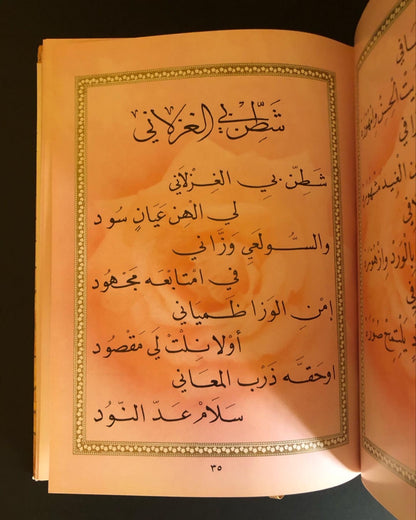 شَطِّن بي الغزلاني
شَطِنّ بي الغِزلاني
لي الهن عَيانٍ سُود
والسّولَعي وَزَّاني
في امتابعه مَجهُود
اِمْنِ الوزا ظَميَاني
أولا نِلتْ لي مَقصُود
اوحَقّه ذَرْب المعَاني
سَلامْ عَدّ النّود
٣٥